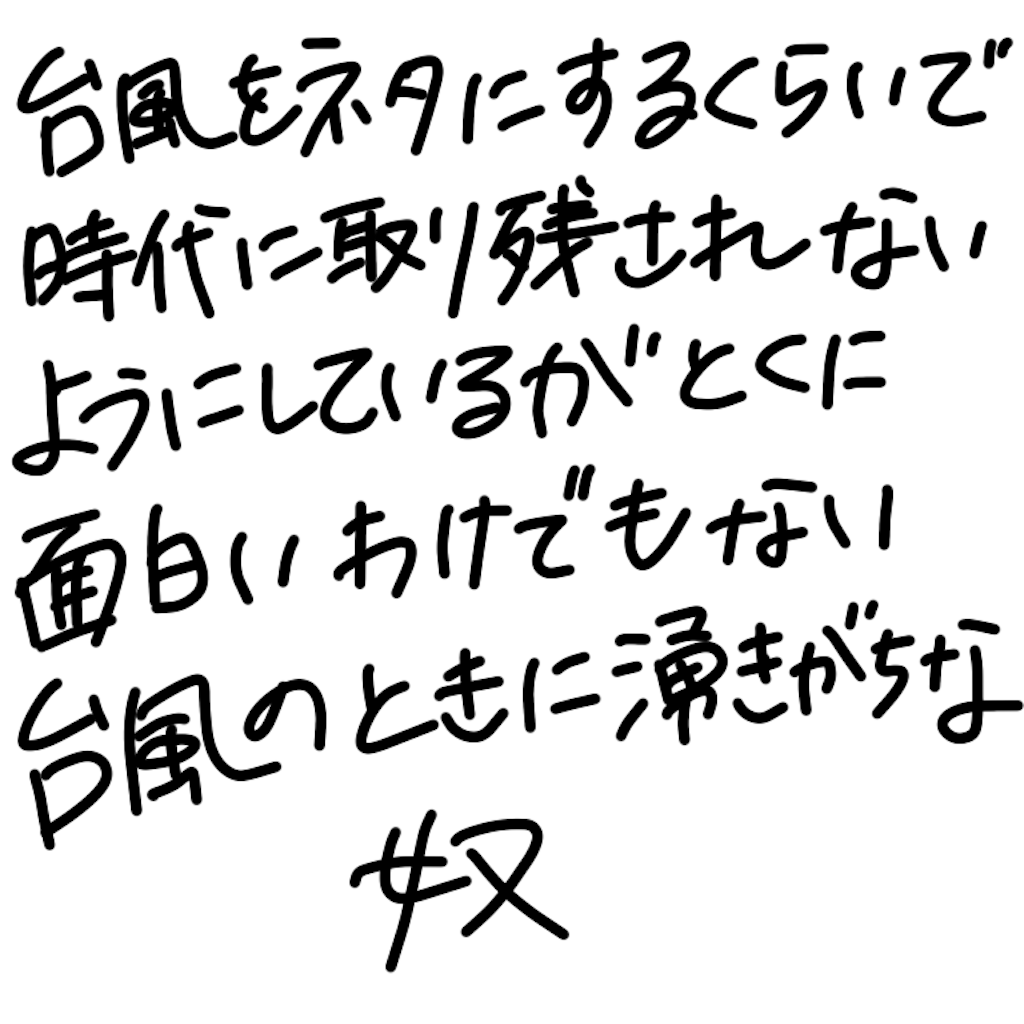 台風をネタにするくらいで
時代に取り残されない
ようにしているがとくに
面白いわけでもない
台風のときに湧きがちな
奴